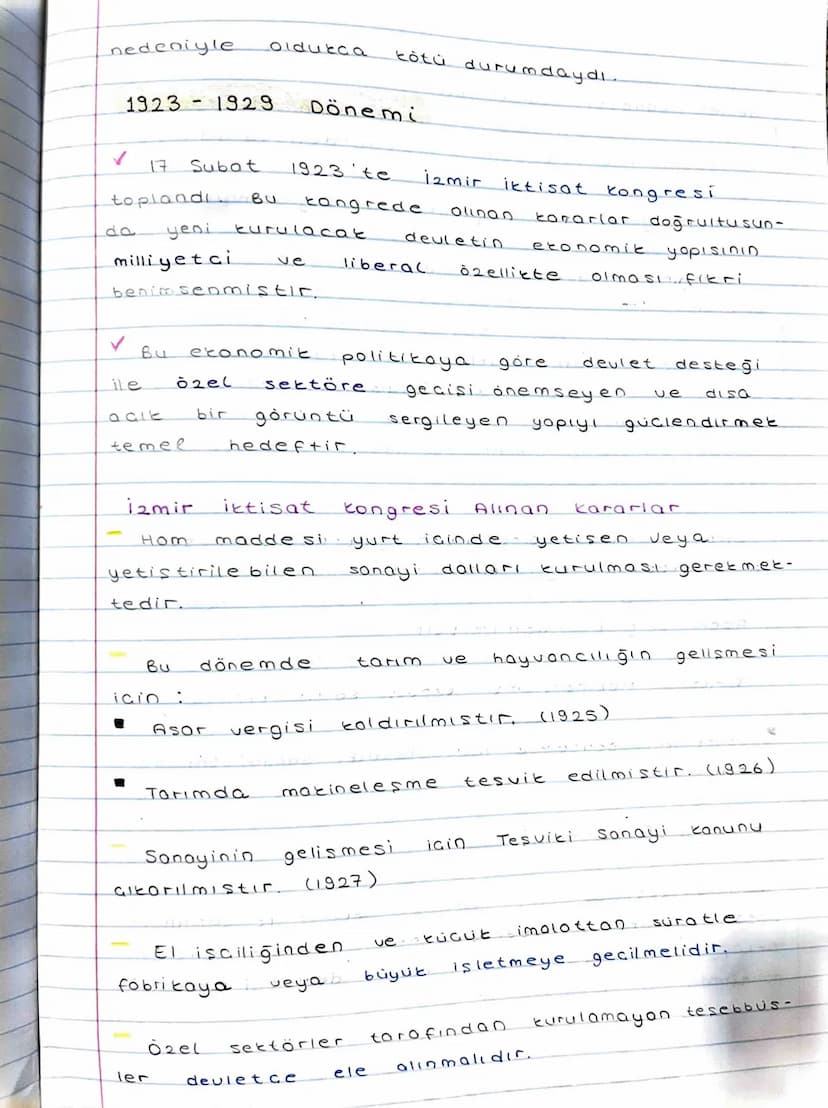 nedeniyle oldukca kötü durumdaydı.
1923 - 1929 Dönemi
✓ 17 Subat 1923'te İzmir iktisat kongresi
toplandı. Bu kongrede alınan kararlar doğrultusun-
da yeni kurulacak devletin ekonomik yapısının
milliyetci ve liberal özellikte olması fikri
benimsenmistir.
✓ Bu ekonomik politikaya göre devlet desteği
ile özel sektöre gecisi önemseyen ve dısa
acık bir görüntü sergileyen yapıyı güclendirmek
temel hedeftir.
İzmir iktisat kongresi Alınan kararlar
- Ham maddesi yurt icinde yetisen veya
yetistirilebilen sanayi dalları kurulması gerekmek-
tedir.
- Bu dönemde tarım ve hayvancılığın gelismesi
icin :
▪ Asar vergisi kaldırılmıstır. (1925)
▪ Tarımda makineleşme tesvik edilmistir. (1926)
- Sanayinin gelismesi icin Tesviki sanayi kanunu
cıkarılmıstır. (1927)
- El isciliğinden ve kücük imalattan süratle
fabrikaya veya büyük işletmeye gecilmelidir.
- Özel sektörler tarafından kurulamayan tesebbüs-
ler devletce ele alınmalıdır.